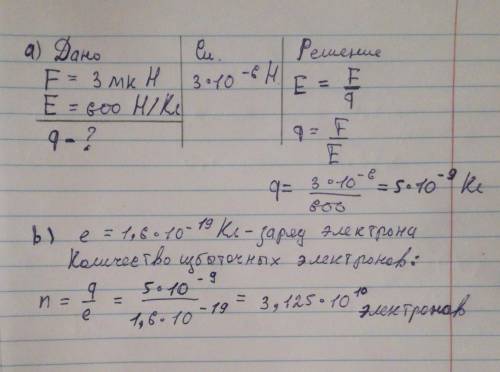 а) Дано Си. Решение
F = 3 мк Н 3•10⁻⁶ Н E = F/q
E = 600 Н/Кл
q - ? q = F/E
q = 3•10⁻⁶/600 = 5•10⁻⁹ Кл
b) e = 1,6•10⁻¹⁹ Кл - заряд электрона
Количество избыточных электронов:
n = q/e = 5•10⁻⁹/1,6•10⁻¹⁹ = 3,125•10¹⁰ электронов